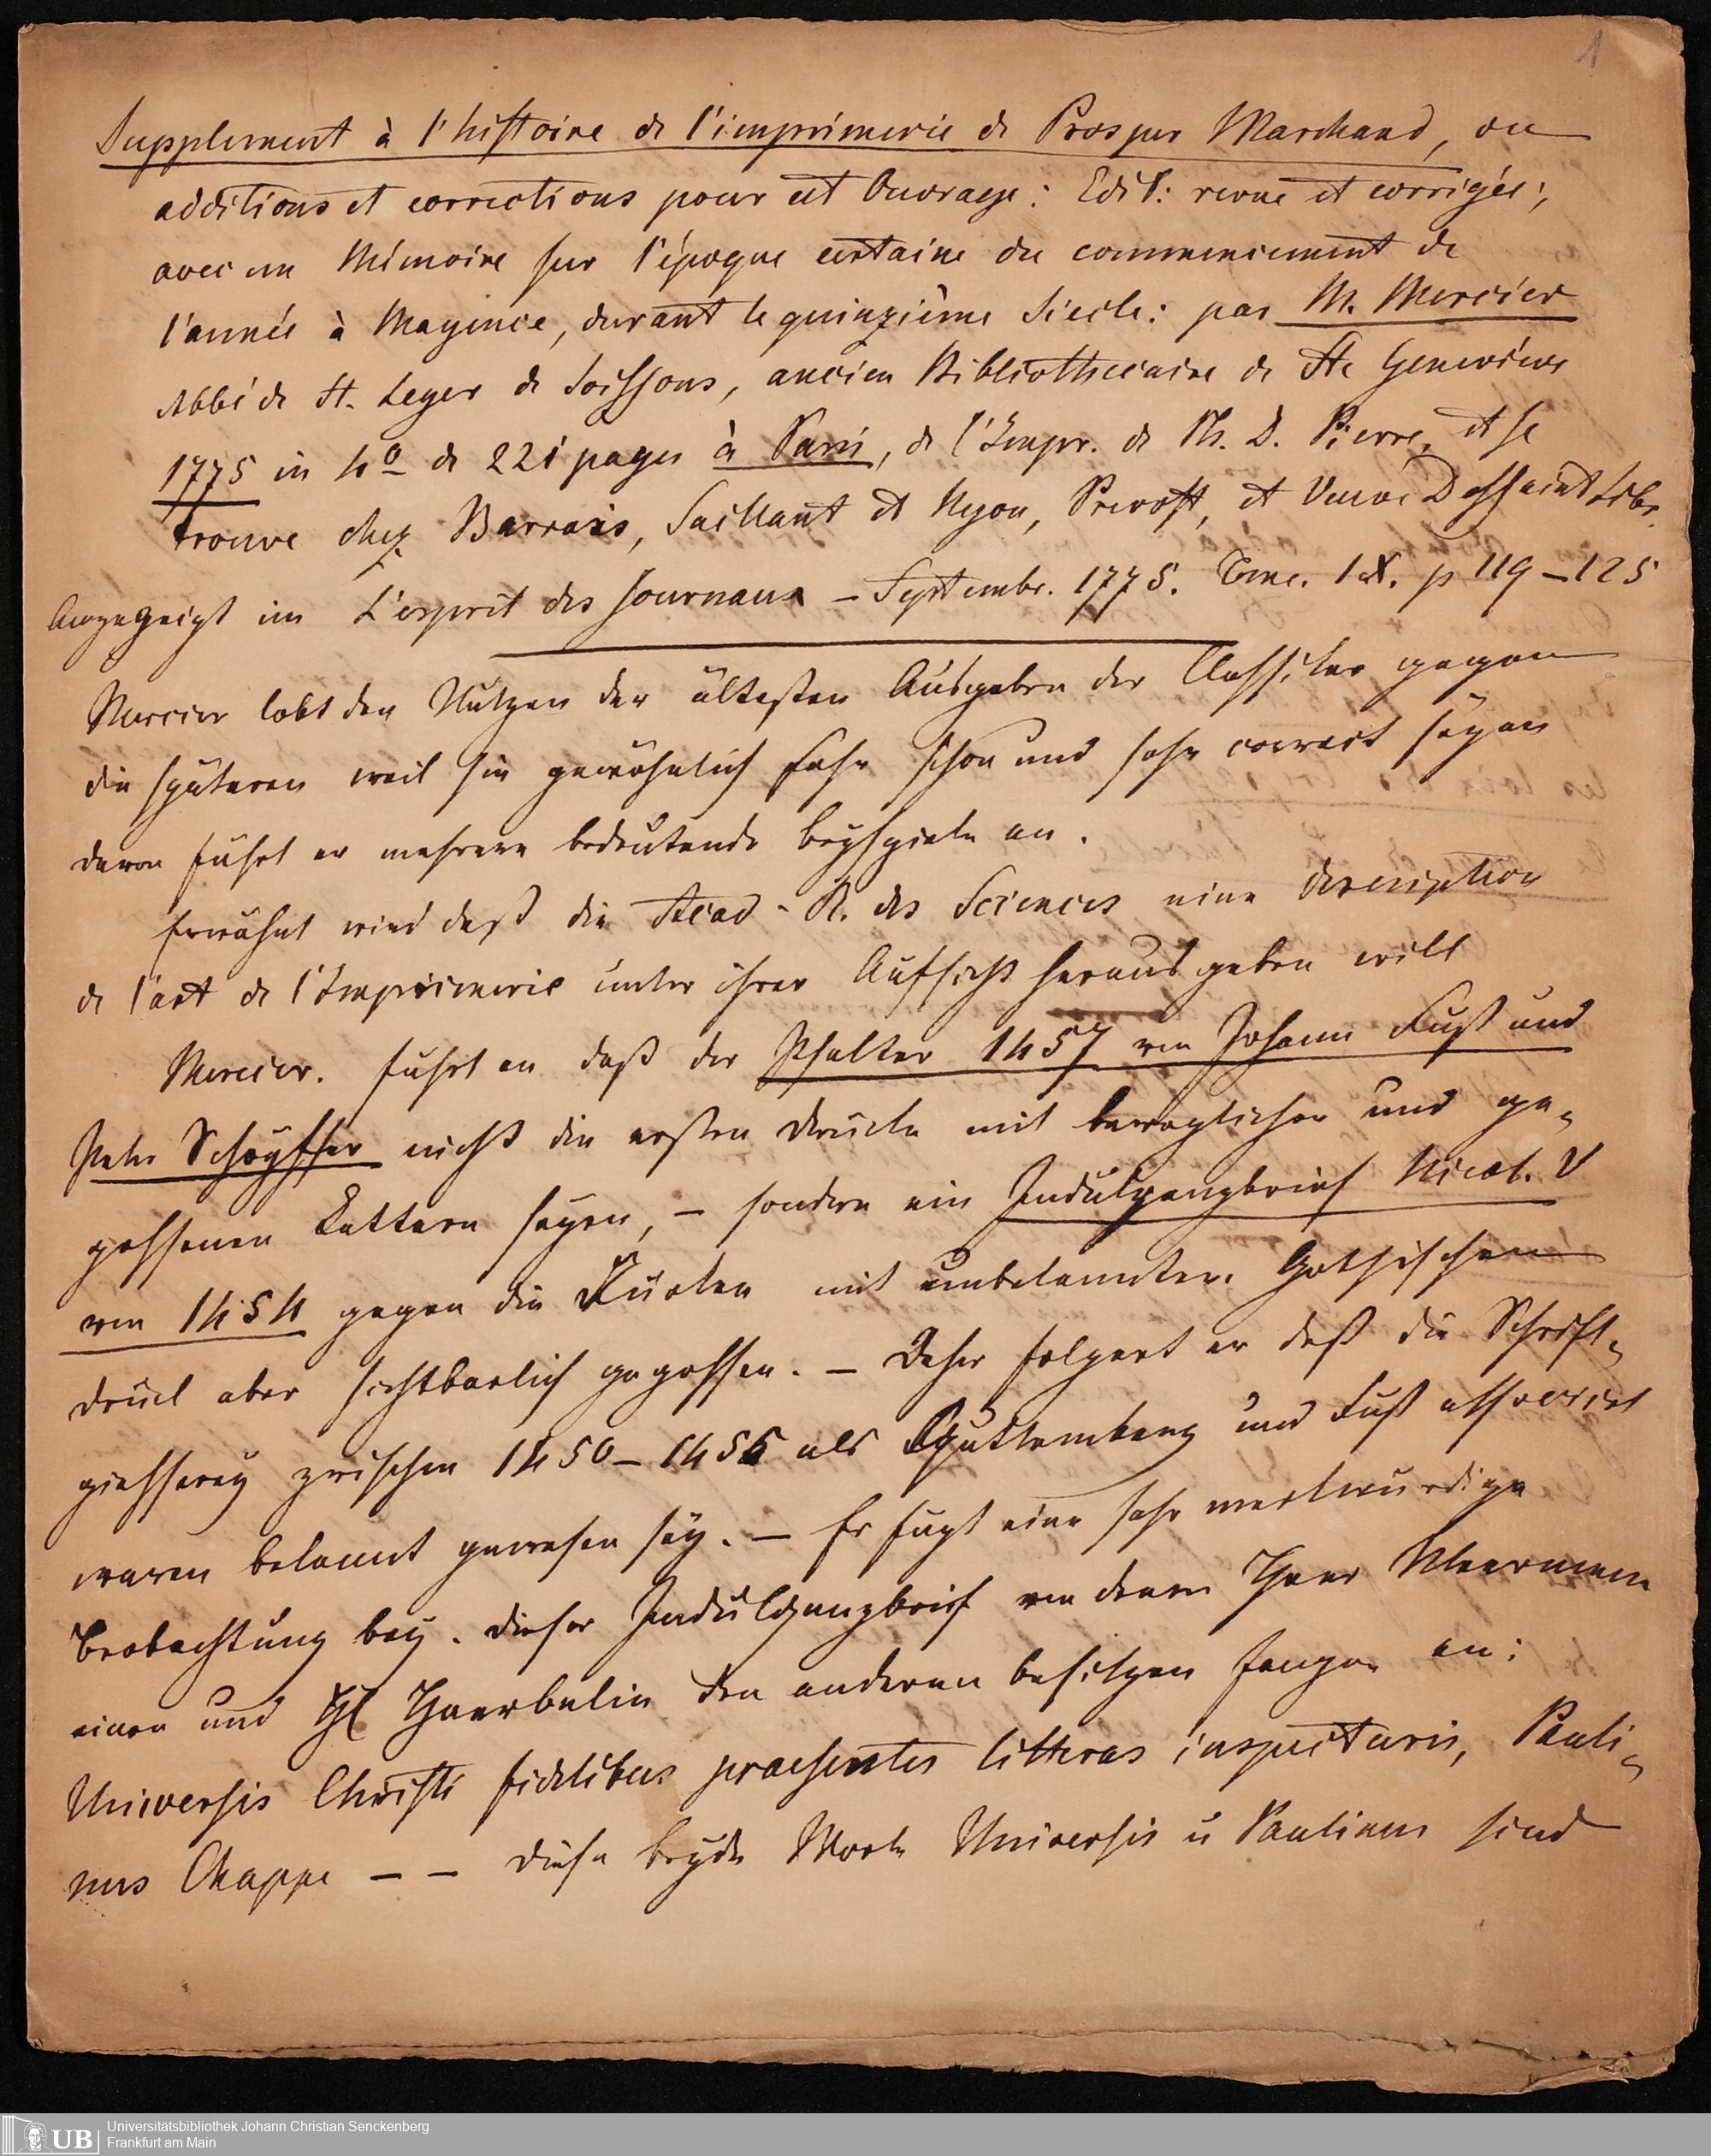 1
Supplement à l'histoire de l'imprimerie de Prosper Marchand, ou
additions et corrections pour cet Ouvrage: Edit: revue et corrigée;
avec un Mémoire sur l'époque certaine du commencement de
l'année à Mayence, durant le quinzième Siecle: par M. Mercier
Abbé de St. Leger de Soissons, ancien Bibliothecaire de Ste Genevieve
1775 in 4o de 221 pages à Paris, de l'Impr. de Ph. D. Pierre, et se
trouve chez Barrois, Saillant et Nyon, Prevost, et Veuve Dessaint Libr.
Angezeigt im L'esprit des Journaux – Septembr. 1775. Tome. IX. p 119–125
Mercier lobt den Nutzen der ältesten Ausgaben der Classiker gegen
die späteren weil sie gewöhnlich sehr schön und sehr correct seyen
davon führt er mehrere bedeutende Beyspiele an.
Erwähnt wird daß die Acad. R. des Sciences eine description
de l'art de l'Imprimerie unter ihrer Aufsicht herausgeben will
Mercier. führt an daß der Psalter 1457 von Johann Fust und
Peter Schöyffer nicht die ersten Drucke mit beweglichen und ge-
gossenen Lettern seyen, – sondern ein Indulgenzbrief Nicol. V
von 1454 gegen die Türken mit unbekannten Gothischen
Druck aber sichtbarlich gegossen. – Daher folgert er daß die Schrift-
giesserey zwischen 1450–1455 als Guttemberg und Fust associirt
waren bekannt gewesen sey. – Er fügt eine sehr merkwürdige
Beobachtung bey. Dieser Indulgenzbrief von denen Herr Meerman
einen und H Haeberlin den anderen besitzen fangen an:
Universis Christi fidelibus praesentes litteras inspecturis, Pauli-
nus Chappe – – Diese beyde Worte Universis u Paulinus sind
UB
Universitätsbibliothek Johann Christian Senckenberg
Frankfurt am Main